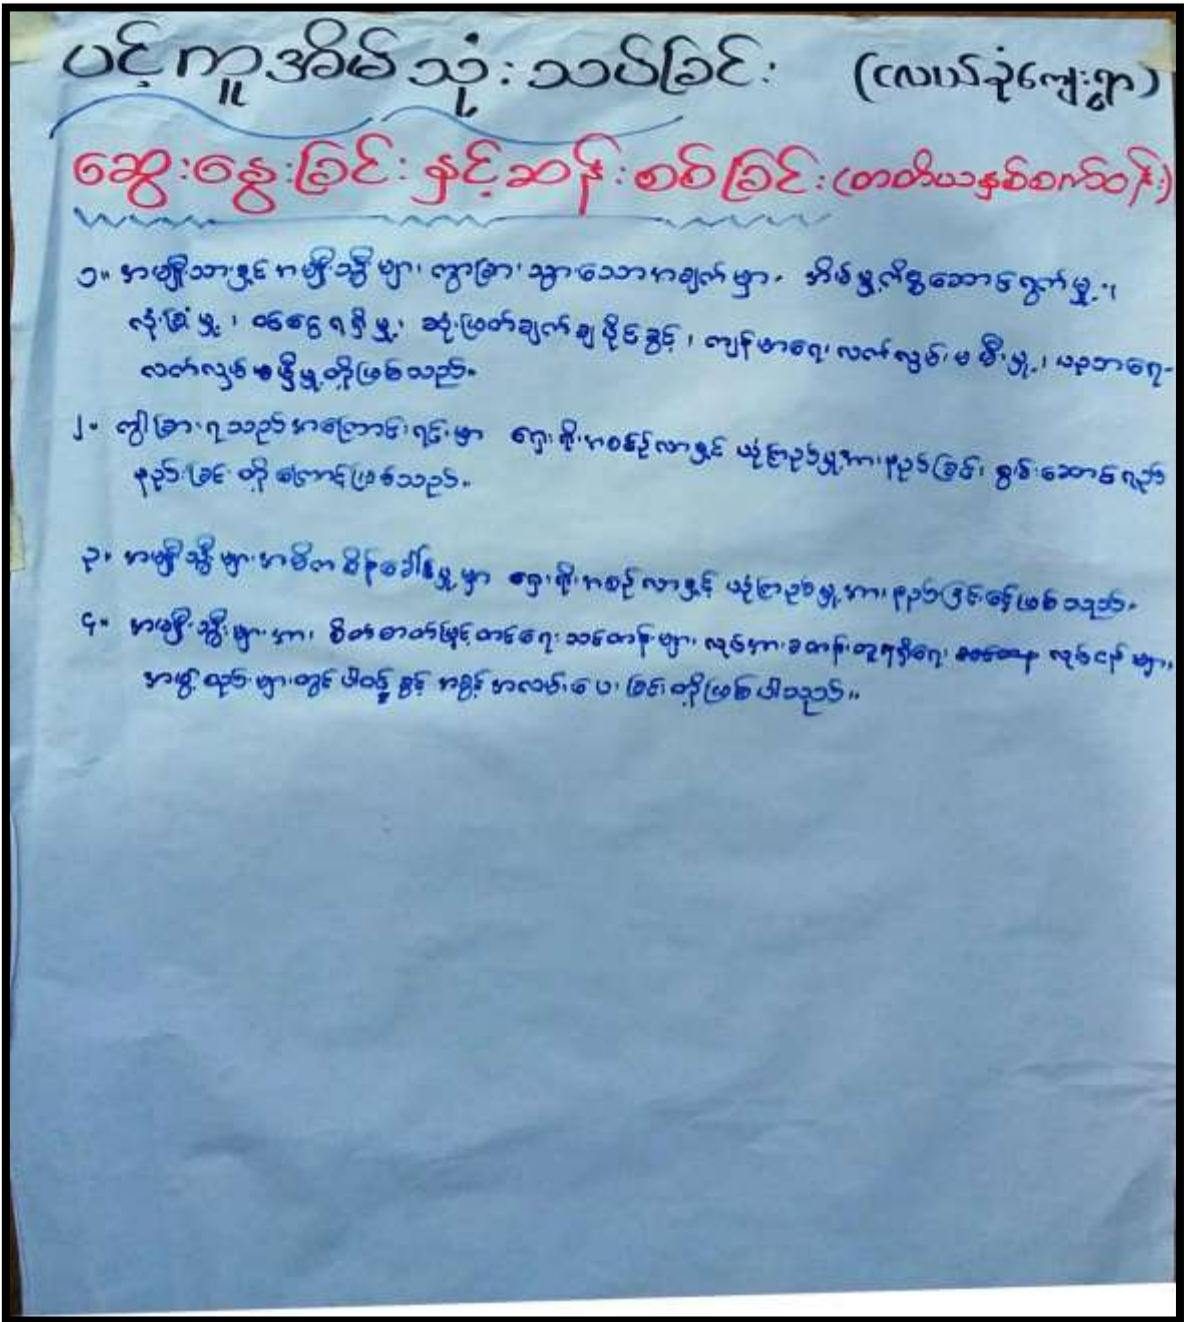 ပင့်ကူအိမ်သုံးသပ်ခြင်း (လယ်ခုံကျေးရွာ)
ဆွေးနွေးခြင်းနှင့်ဆန်းစစ်ခြင်း (တတိယနှစ်စက်ဝန်း)
၁။ အမျိုးသားနှင့် အမျိုးသမီးများ ကွာခြားသွားသောအချက်မှာ အိမ်မှုကိစ္စဆောင်ရွက်မှု၊
လုံခြုံမှု၊ ဝင်ငွေရရှိမှု၊ ဆုံးဖြတ်ချက်ချနိုင်ခွင့်၊ ကျန်းမာရေးလက်လှမ်းမမီမှု၊ ပညာရေး
လက်လှမ်းမမီမှုတို့ဖြစ်သည်။
၂။ ကွဲပြားရသည့်အကြောင်းရင်းမှာ ရှေးရိုးအစဉ်လာနှင့် ယုံကြည်မှုအားနည်းခြင်း၊ စွမ်းဆောင်ရည်
နည်းခြင်းတို့ကြောင့်ဖြစ်သည်။
၃။ အမျိုးသမီးများအဓိက စိန်ခေါ်မှုမှာ ရှေးရိုးအစဉ်လာနှင့် ယုံကြည်မှုအားနည်းခြင်းဖြစ်သည်။
၄။ အမျိုးသမီးများအား စိတ်ဓာတ်မြှင့်တင်ရေးသင်တန်းများ၊ လုပ်အားခတန်းတူရရှိရေး လုပ်ငန်းများ၊
အဖွဲ့အစည်းများတွင် ပါဝင်ခွင့် အခွင့်အလမ်းပေးခြင်းတို့ဖြစ်ပါသည်။